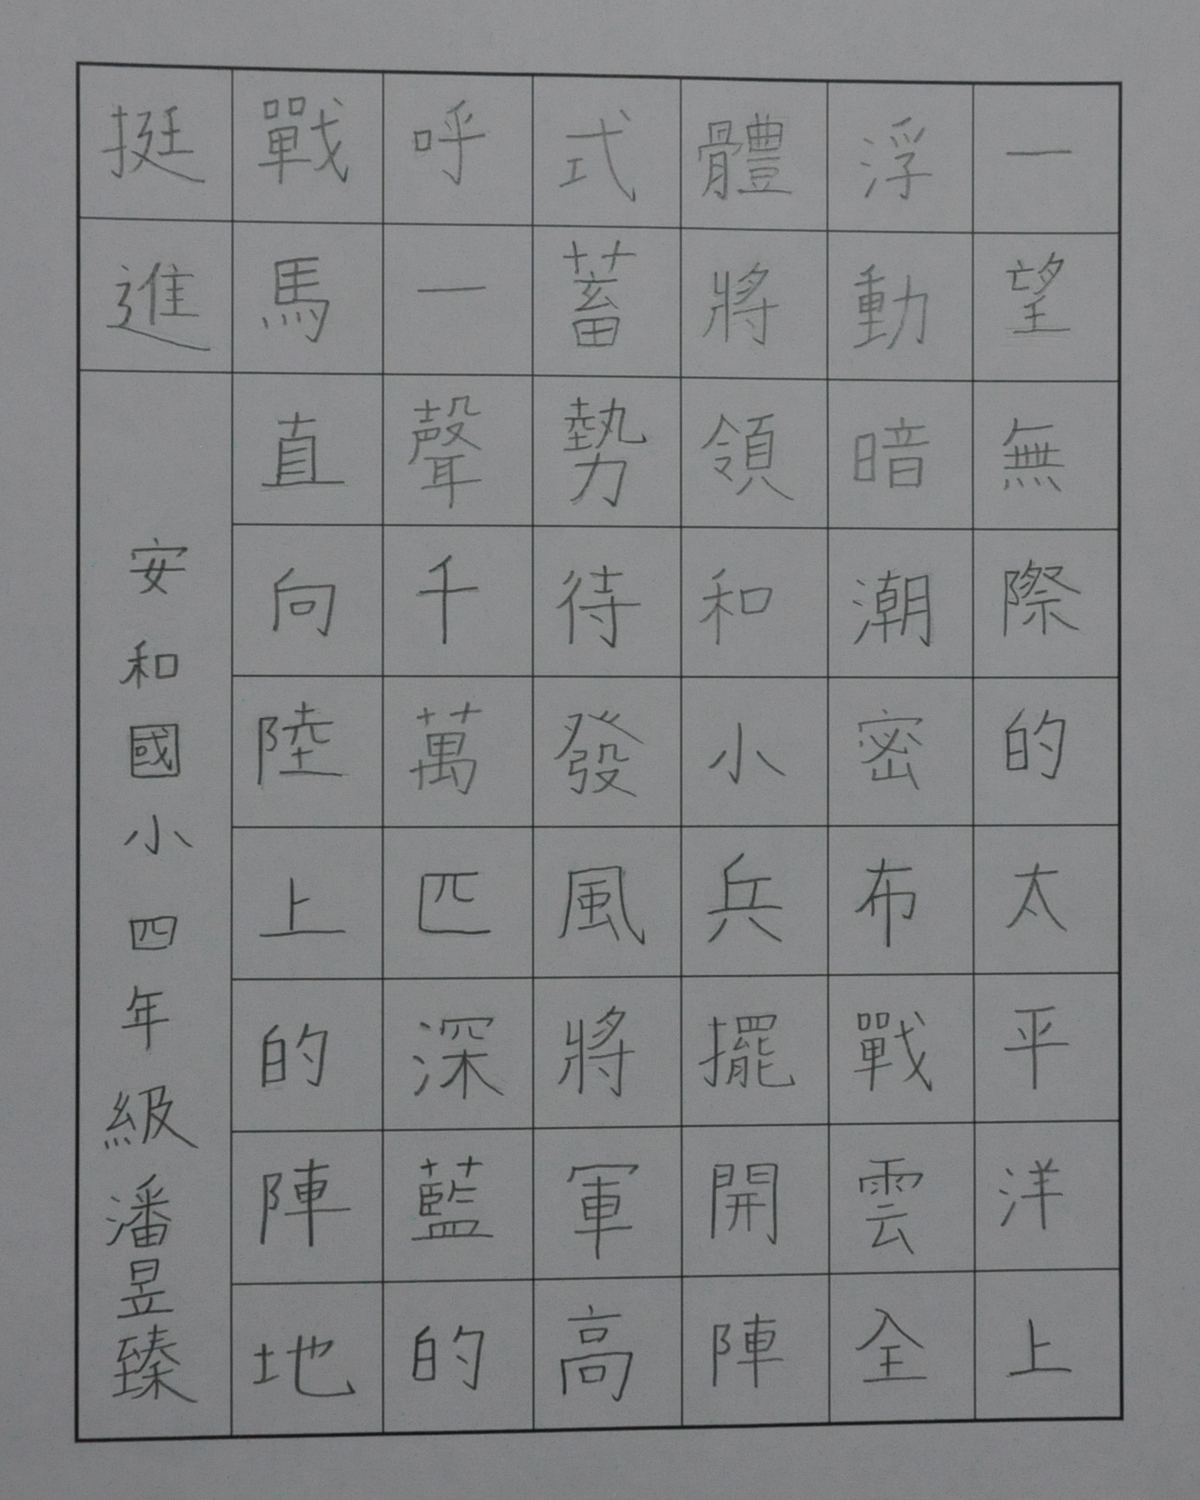 一望無際的太平洋上
浮動暗潮密布戰雲全
體將領和小兵擺開陣
式蓄勢待發風將軍高
呼一聲千萬匹深藍的
戰馬直向陸上的陣地
挺進
安和國小四年級潘昱臻